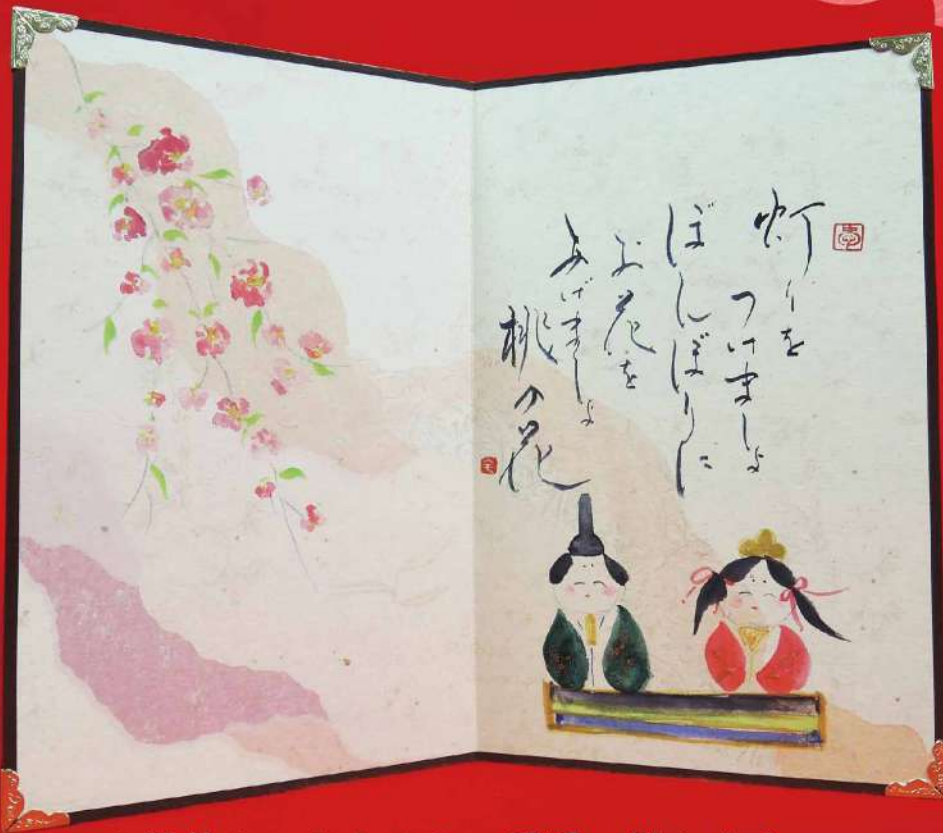 灯りを
つけましょ
ぼんぼりに
お花を
あげましょ
桃の花